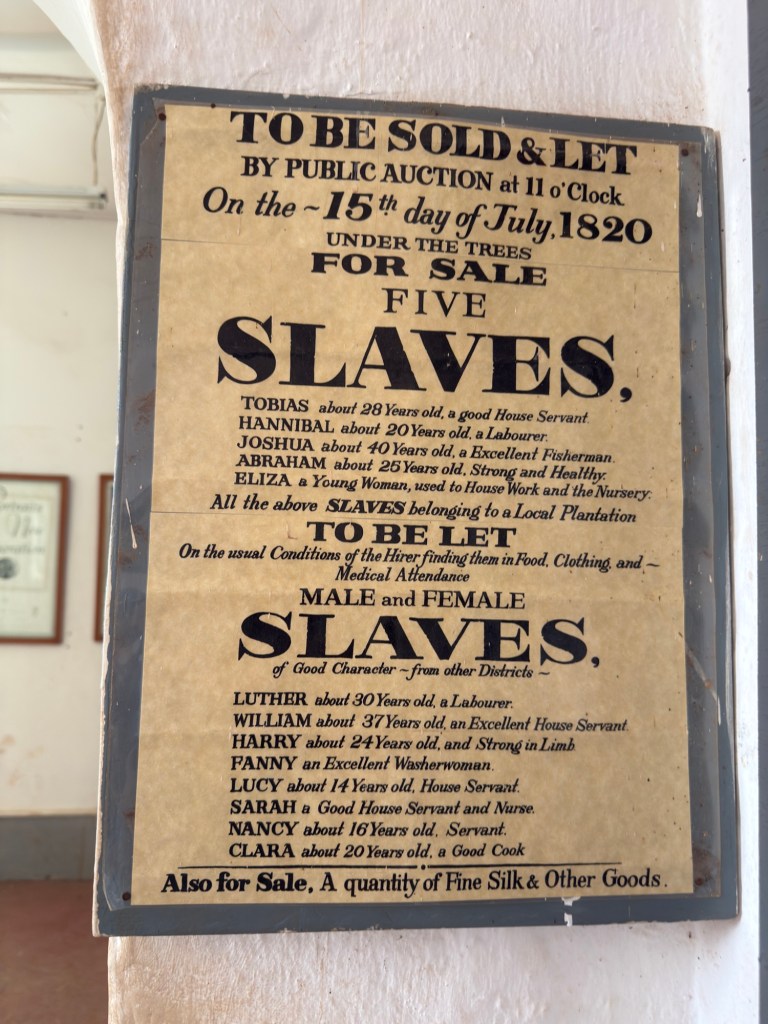 TO BE SOLD & LET
BY PUBLIC AUCTION at 11 o'Clock
On the ~ 15th day of July, 1820
UNDER THE TREES
FOR SALE
FIVE
SLAVES,
TOBIAS about 28 Years old, a good House Servant.
HANNIBAL about 20 Years old, a Labourer.
JOSHUA about 40 Years old, a Excellent Fisherman.
ABRAHAM about 25 Years old, Strong and Healthy.
ELIZA a Young Woman, used to House Work and the Nursery.
All the above SLAVES belonging to a Local Plantation
TO BE LET
On the usual Conditions of the Hirer finding them in Food, Clothing, and ~
Medical Attendance
MALE and FEMALE
SLAVES,
of Good Character ~ from other Districts ~
LUTHER about 30 Years old, a Labourer.
WILLIAM about 37 Years old, an Excellent House Servant.
HARRY about 24 Years old, and Strong in Limb
FANNY an Excellent Washerwoman.
LUCY about 14 Years old, House Servant.
SARAH a Good House Servant and Nurse.
NANCY about 16 Years old, Servant.
CLARA about 20 Years old, a Good Cook
Also for Sale, A quantity of Fine Silk & Other Goods.